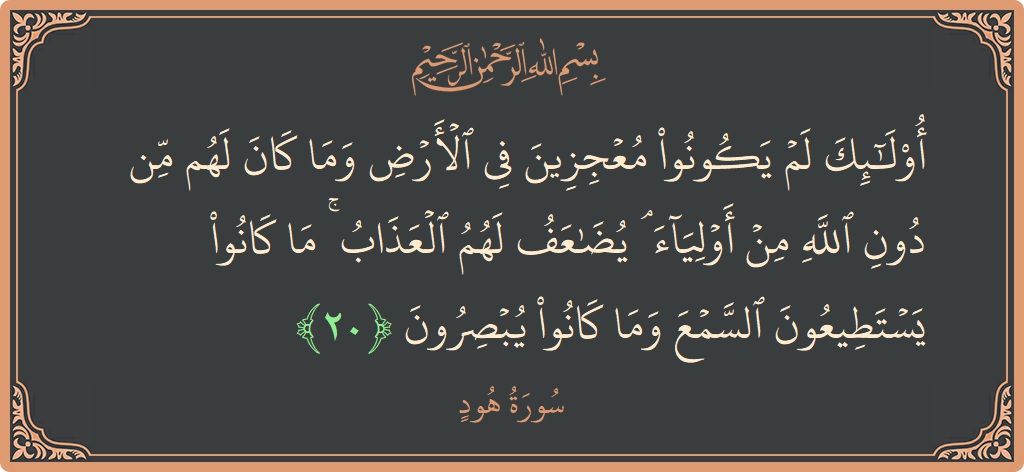 بِسْمِ اللَّهِ الرَّحْمَٰنِ الرَّحِيمِ
أُوْلَٰٓئِكَ لَمۡ يَكُونُواْ مُعۡجِزِينَ فِي ٱلۡأَرۡضِ وَمَا كَانَ لَهُم مِّن
دُونِ ٱللَّهِ مِنۡ أَوۡلِيَآءَۘ يُضَٰعَفُ لَهُمُ ٱلۡعَذَابُۚ مَا كَانُواْ
يَسۡتَطِيعُونَ ٱلسَّمۡعَ وَمَا كَانُواْ يُبۡصِرُونَ ﴿٢٠﴾
سُورَةُ هُودٍ